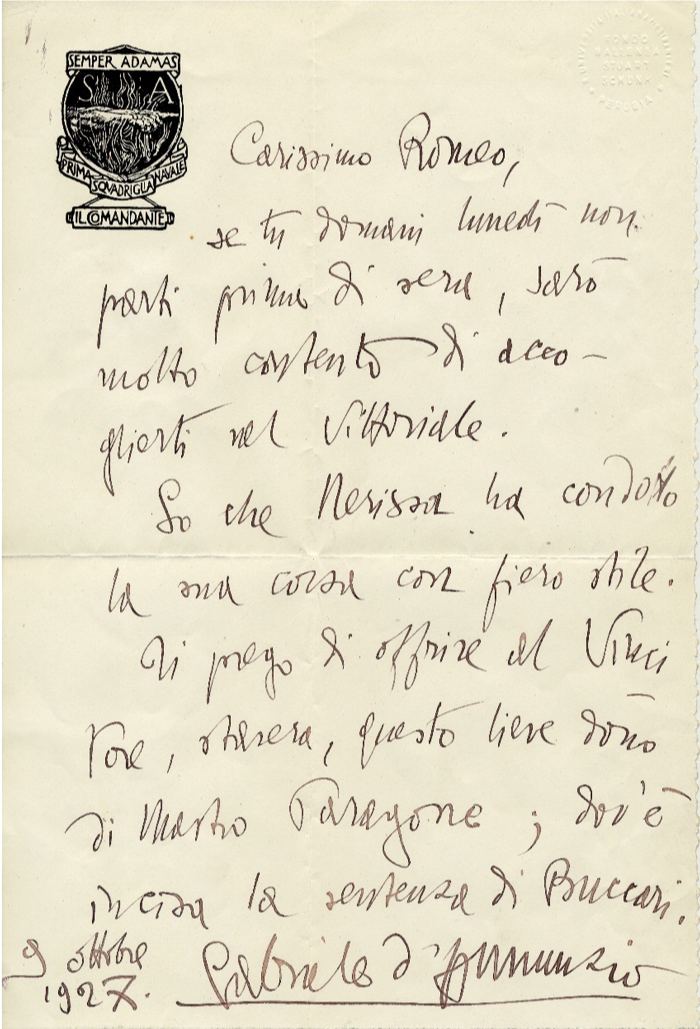 SEMPER ADAMAS
S A
PRIMA SQVADRIGLIA NAVALE
IL COMANDANTE
FONDO
GALLENGA
STUART
PERUGIA
Carissimo Romeo,
se tu domani lunedì non
parti prima di sera, sarò
molto contento di acco-
glierti nel Vittoriale.
So che Nerissa ha condotto
la sua corsa con fiero stile.
Ti prego di offrire al Vinci
tore, stasera, questo lieve dono
di Mastro Paragone; dov'è
incisa la sentenza di Buccari.
9 ottobre
1927.
Gabriele d'Annunzio